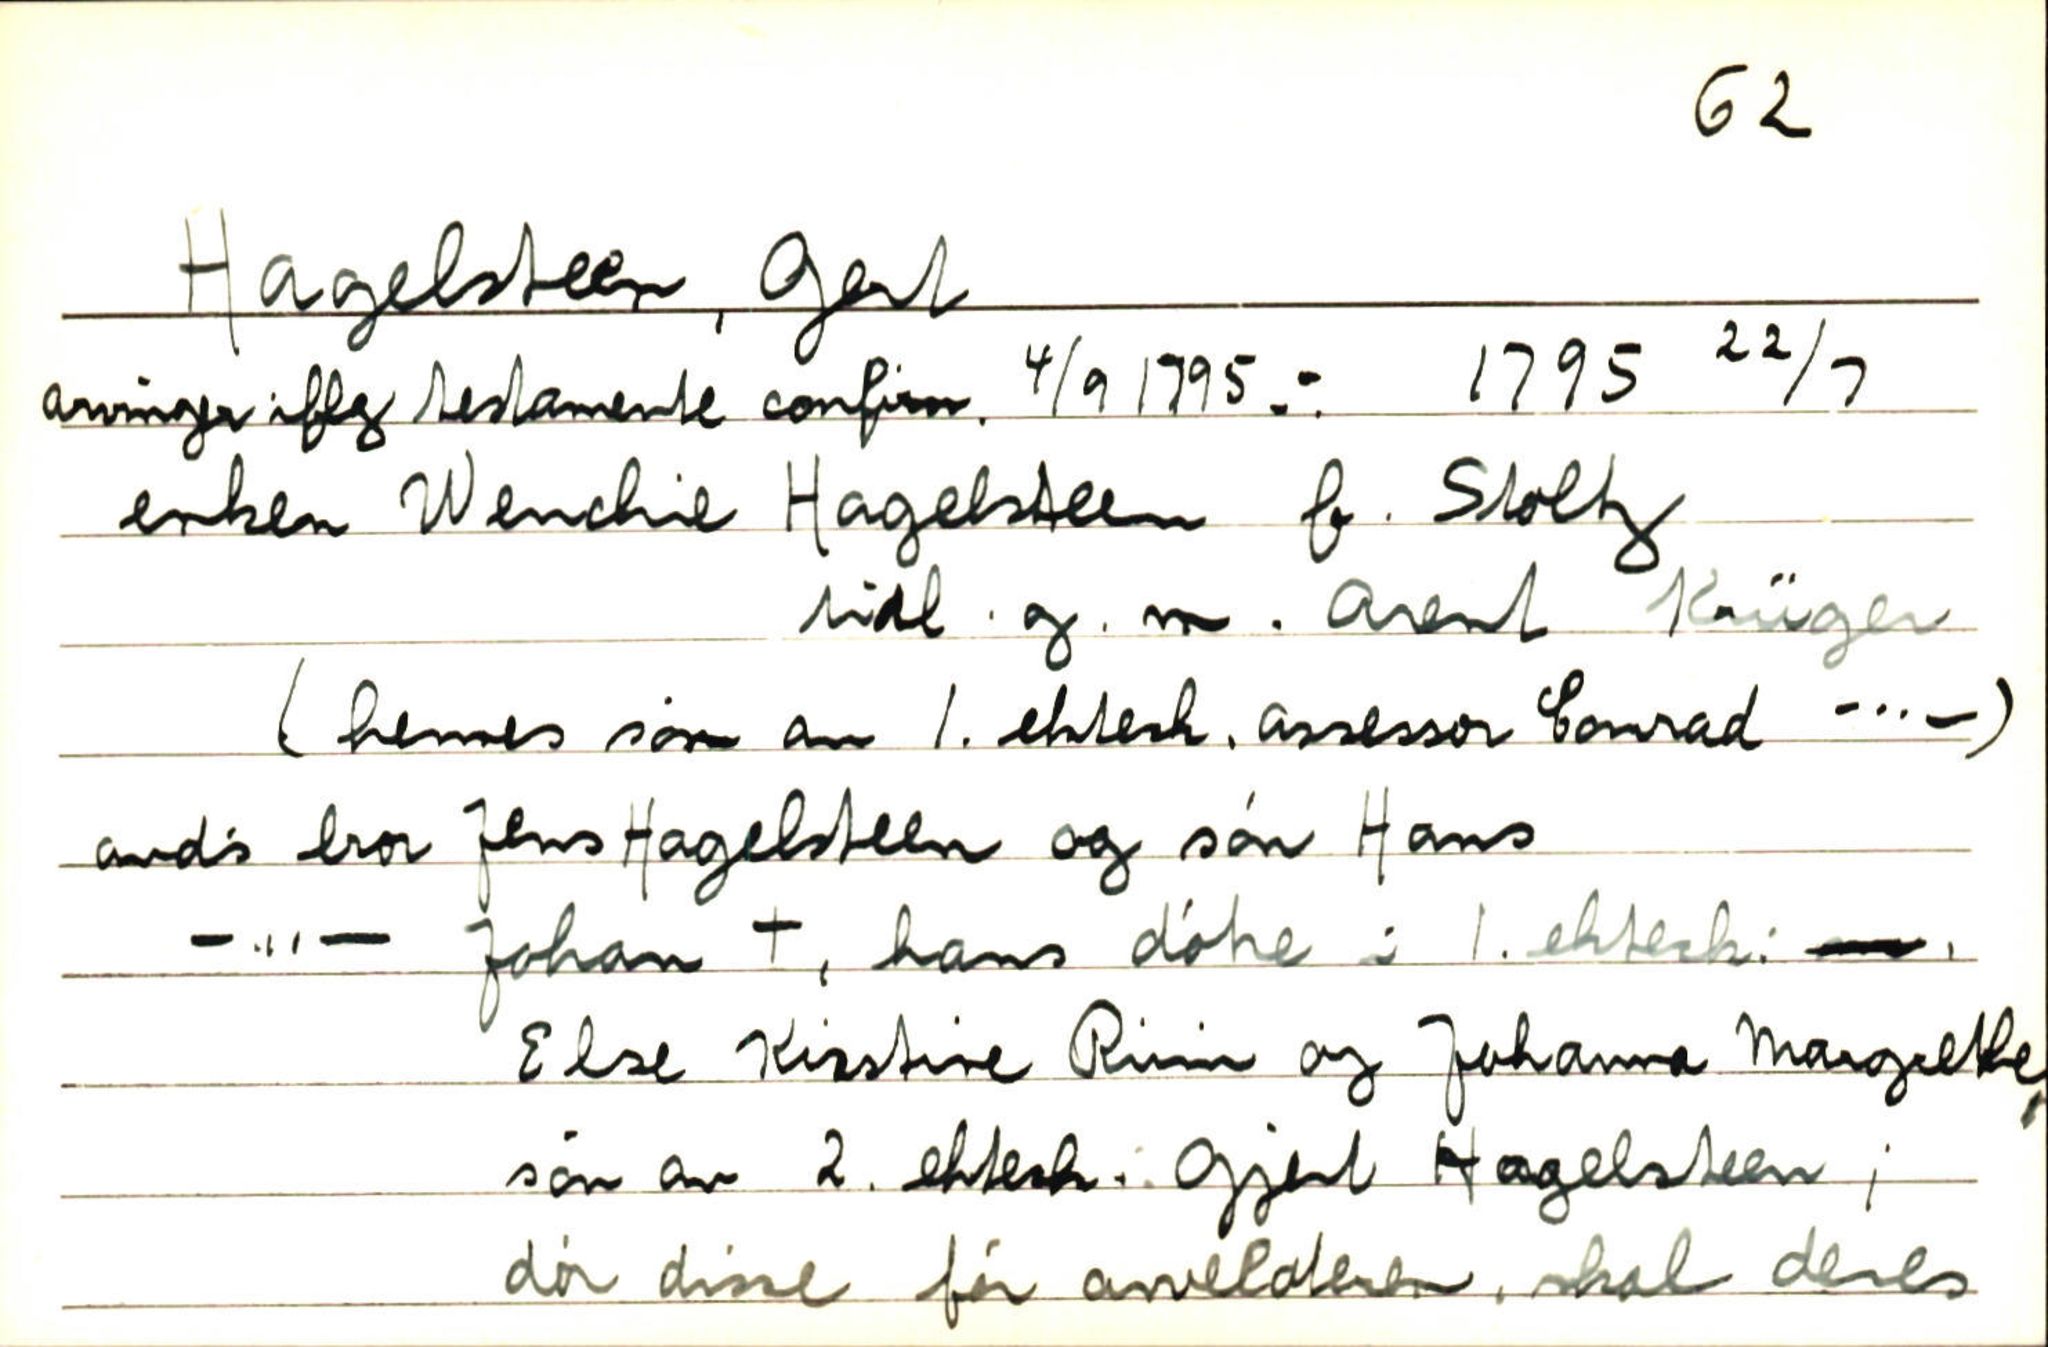 62
Hagelsteen, Gert
arvinger iflg testamente confirm. 4/9 1795 -: 1795 22/7
enken Wenchie Hagelsteen f. Stoltz
tidl. g. m. Arent Krüger
(hennes sön av 1. ektesk. assessor Conrad -"-)
avd's bror Jens Hagelsteen og sön Hans
-"- Johan +, hans dötre i 1. ektesk:
Else Kirstine Riim og Johanna Margrethe,
sön av 2. ektesk: Gjert Hagelsteen;
dör disse för arveladeren, skal deres